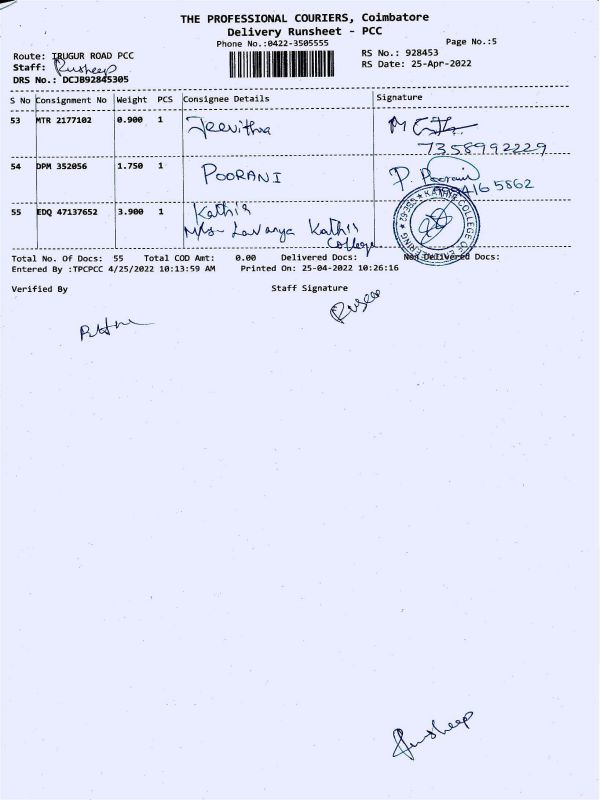 THE PROFESSIONAL COURIERS, Coimbatore
Delivery Runsheet - PCC
Phone No.:0422-3505555 Page No.:5
Route: IRUGUR ROAD PCC RS No.: 928453
Staff: Rusheep RS Date: 25-Apr-2022
DRS No.: DCJB92845305
S No Consignment No Weight PCS Consignee Details Signature
53 MTR 2177102 0.900 1 Jeevithra
7358992229
54 DPM 352056 1.750 1 POORANI P. Poorani
5862
55 EDQ 47137652 3.900 1 Kathir
M/s- Lavanya Kathir
College
Total No. Of Docs: 55 Total COD Amt: 0.00 Delivered Docs: Non Delivered Docs:
Entered By :TPCPCC 4/25/2022 10:13:59 AM Printed On: 25-04-2022 10:26:16
Verified By Staff Signature